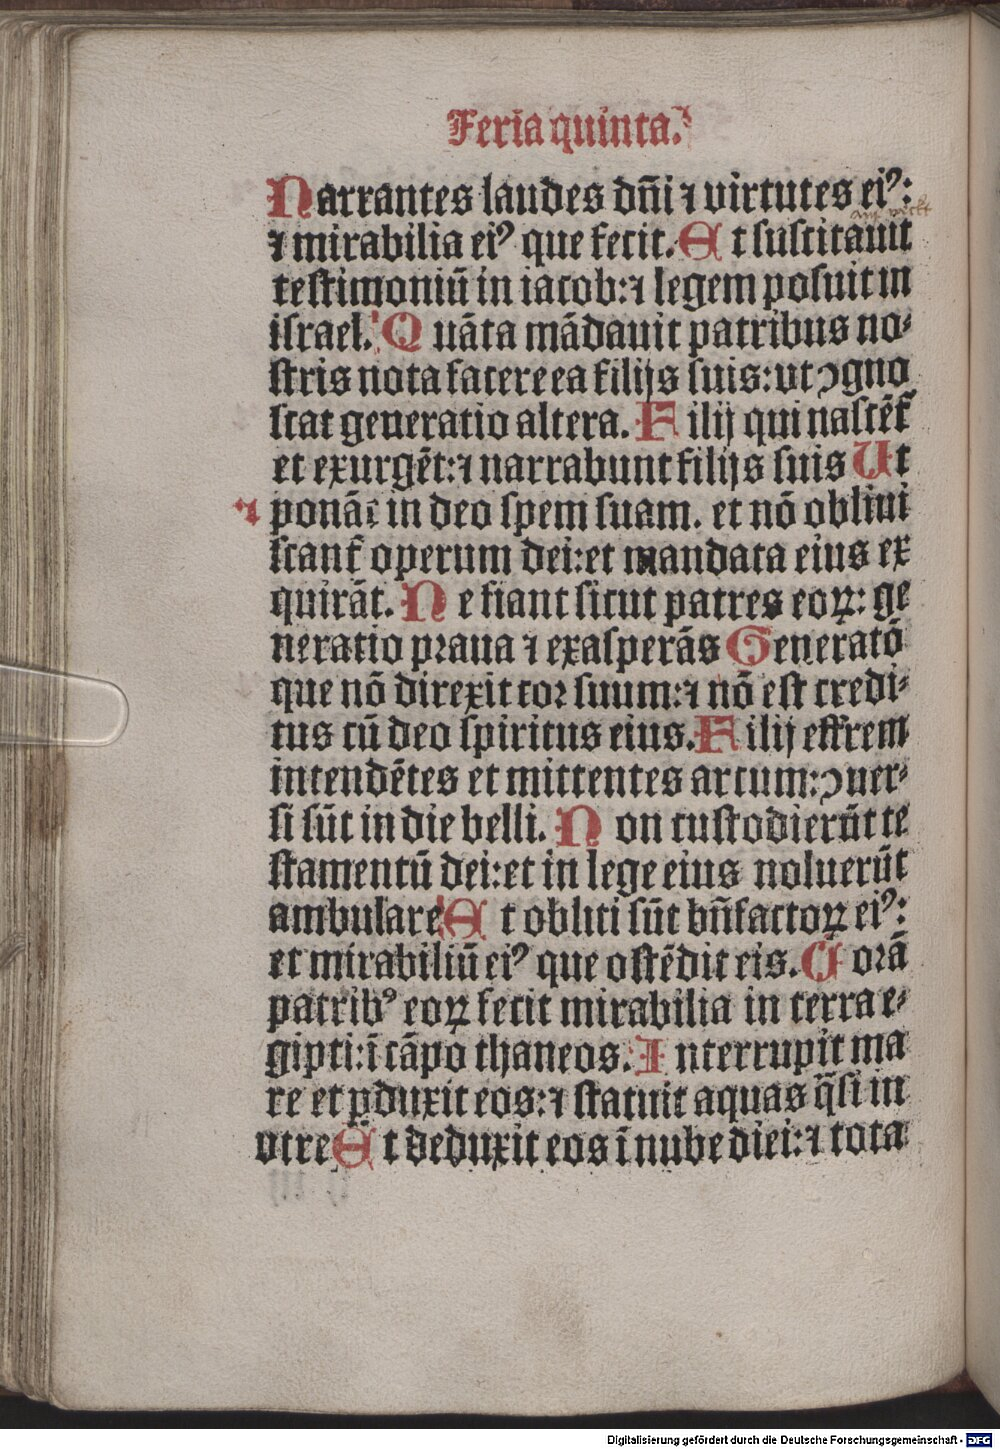 Feria quinta.
Narrantes laudes dñi ⁊ virtutes eiꝰ:
⁊ mirabilia eiꝰ que fecit. Et suscitauit
testimoniũ in iacob: ⁊ legem posuit in
israel. Quãta mãdauit patribus no⸗
stris nota facere ea filijs suis: vt ꝯgno
scat generatio altera. Filij qui nascẽt᷑
et exurgẽt: ⁊ narrabunt filijs suis Ut
⁊ ponãt in deo spem suam. et nõ obliui
scant᷑ operum dei: et mandata eius ex
quirãt. Ne fiant sicut patres eoꝝ: ge
neratio praua ⁊ exasperãs Generatõ
que nõ direxit cor suum: ⁊ nõ est credi⸗
tus cũ deo spiritus eius. Filij effrem
intendẽtes et mittentes arcum: ꝯuer⸗
si sũt in die belli. Non custodierũt te
stamentũ dei: et in lege eius noluerũt
ambulare Et obliti sũt bñfactoꝝ eiꝰ:
et mirabiliũ eiꝰ que ostẽdit eis. Corã
patribꝰ eoꝝ fecit mirabilia in terra e⸗
gipti: ĩ cãpo thaneos. Interrupit ma
re et ꝑduxit eos: ⁊ statuit aquas q̃si in
vtre Et deduxit eos ĩ nube diei: ⁊ tota
Digitalisierung gefördert durch die Deutsche Forschungsgemeinschaft - DFG